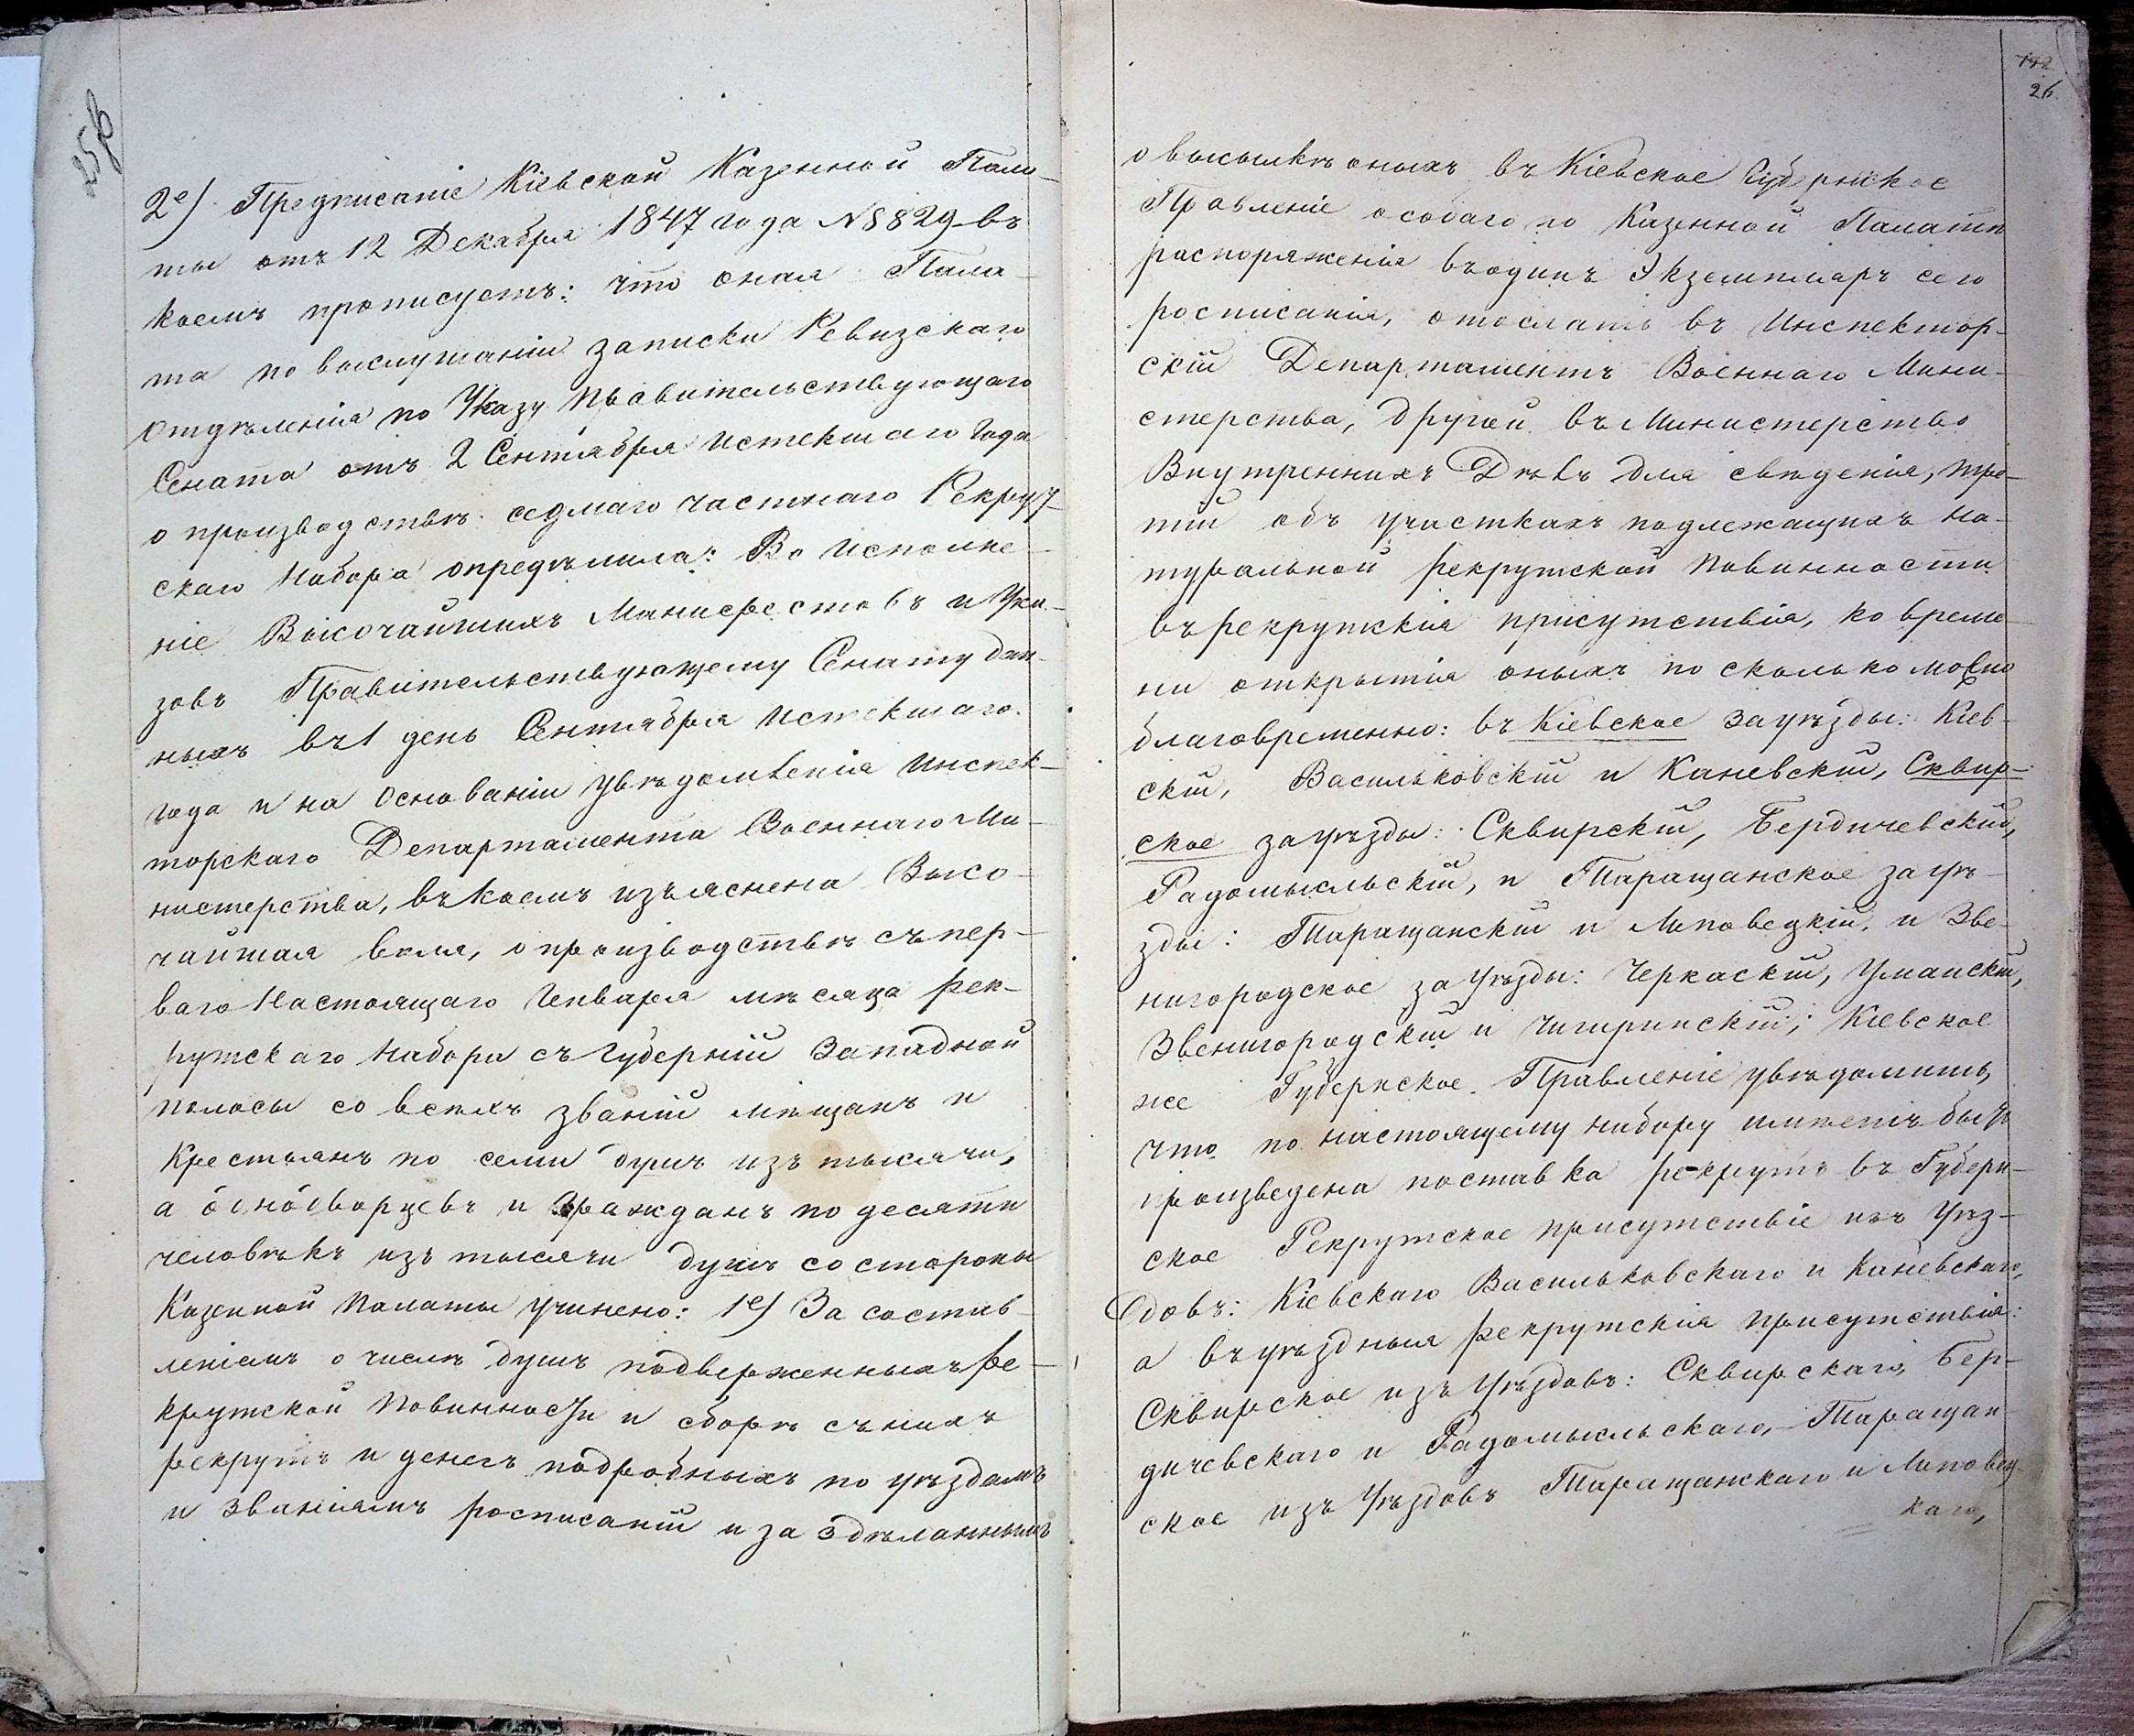 25б
2е) Предписаніе Кіевской Казенной Пала-
ты отъ 12 Декабря 1847 года N 8829 въ
коемъ прописуетъ: что оная Пала-
та по выслушаніи записки Ревизскаго
Отдѣленія по Указу Правительствующаго
Сената отъ 2 Сентября истекшаго Года
о производствѣ седмаго частнаго Рекрут-
скаго Набора опредѣлила: Во исполне-
ніе Высочайшихъ Манифестовъ и Ука-
зовъ Правительствующему Сенату дан-
ныхъ въ 1 день Сентября истекшаго
года и на основаніи увѣдомленія Инспек-
торскаго Департамента Военнаго Ми-
нистерства, въ коемъ изъяснена Высо-
чайшая воля, о производствѣ съ пер-
ваго Настоящаго Генваря мѣсяца рек-
рутскаго Набора съ Губерній Западной
полосы со всѣхъ званій мѣщанъ и
Крестьянъ по семи душъ изъ тысячи,
а однодворцевъ и Гражданъ по десяти
человѣкъ изъ тысячи душъ со стороны
Казенной Палаты учинено: 1е) За состав-
леніемъ о числѣ душъ подверженныхъ ре-
крутской Повинности и сборѣ съ нихъ
рекрутъ и денегъ подробныхъ по уѣздамъ
и званіямъ росписаній и за здѣланнымъ
192
26
о высылкѣ оныхъ въ Кіевское Губернское
Правленіе особаго по Казенной Палатѣ
распоряженія въ одинъ Экземпляръ сего
росписанія, отослать въ Инспектор-
скій Департаментъ Военнаго Мини-
стерства, другой въ Министерство
Внутреннихъ Дѣлъ для свѣденія, тре-
тій объ участкахъ подлежащихъ на-
туральной рекрутской Повинности
въ рекрутскія присутствія, ко време-
ни открытія оныхъ по сколько можно
благовременно: въ Кіевское за уѣзды: Кіев-
скій, Васильковскій и Каневскій, Сквир-
ское за уѣзды: Сквирскій, Бердичевскій,
Радомысльскій, и Таращанское за уѣ-
зды: Таращанскій и Липовецкій, и Зве-
нигородское за Уѣзды: Черкаскій, Уманскій,
Звенигородскій и Чигиринскій; Кіевское
же Губернское Правленіе увѣдомить,
что по настоящему набору имѣетъ быть
произведена поставка рекрутъ въ Губерн-
ское Рекрутское присутствіе изъ Уѣз-
довъ: Кіевскаго Васильковскаго и Каневскаго,
а въ уѣздныя рекрутскія присутствія:
Сквирское изъ Уѣздовъ: Сквирскаго, Бер-
дичевскаго и Радомысльскаго, Таращан-
ское изъ Уѣздовъ Таращанскаго и Липовец-
каго,